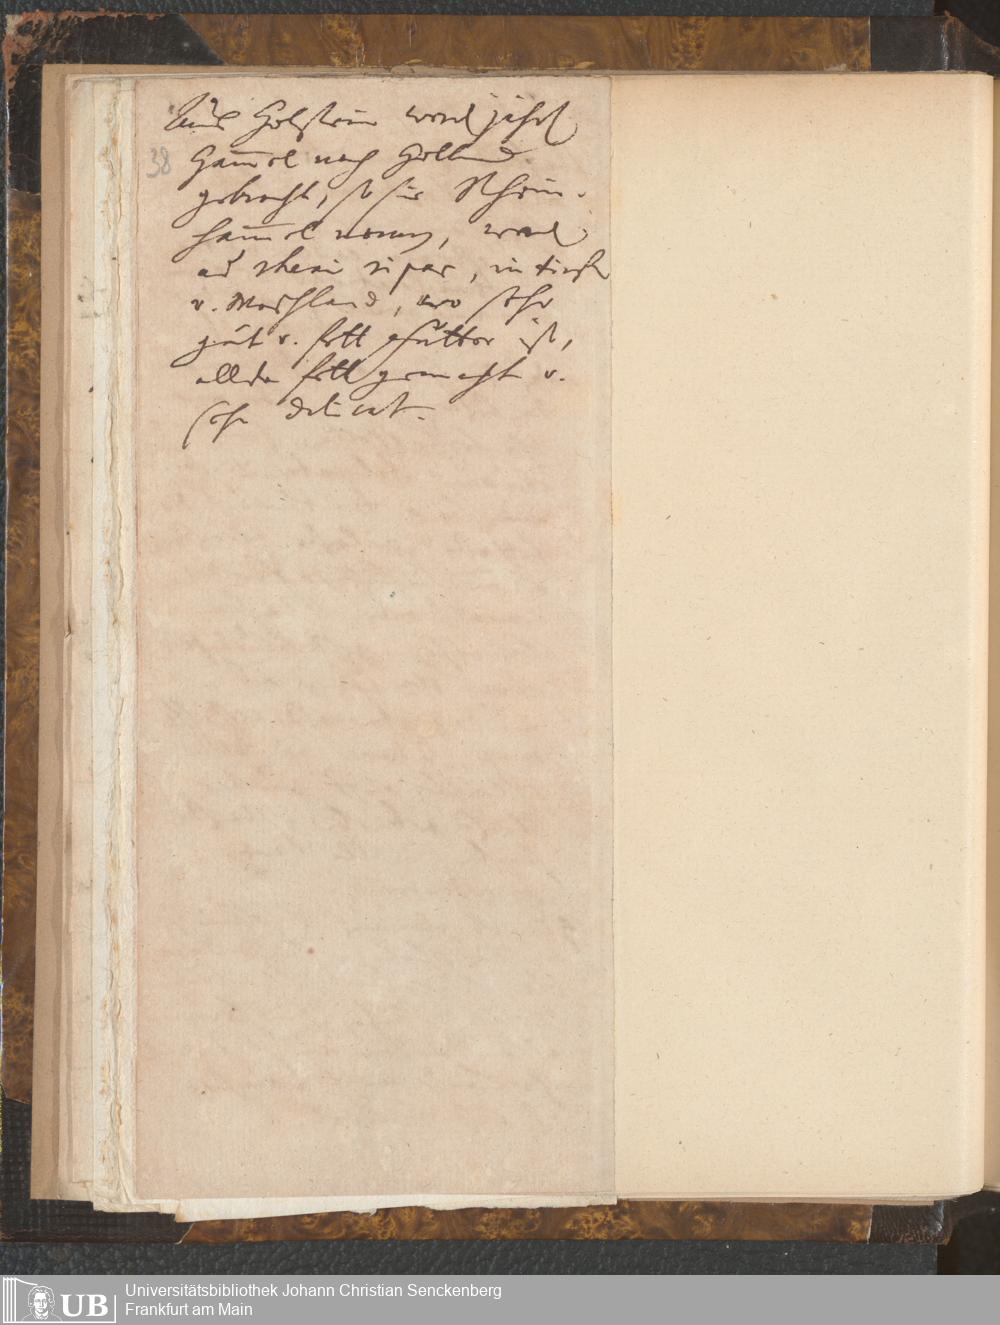 Aus Holstein werd jährl
38
Ham̄el nach Holland
gebracht, so sie Rhein-
ham̄el nenn̄, werd
ad rheni ripas, in
v. Marschland, wo sehr
gut v. fett gfutter ist,
allda fett gemacht v.
sehr delicat.
UB
Universitätsbibliothek Johann Christian Senckenberg
Frankfurt am Main